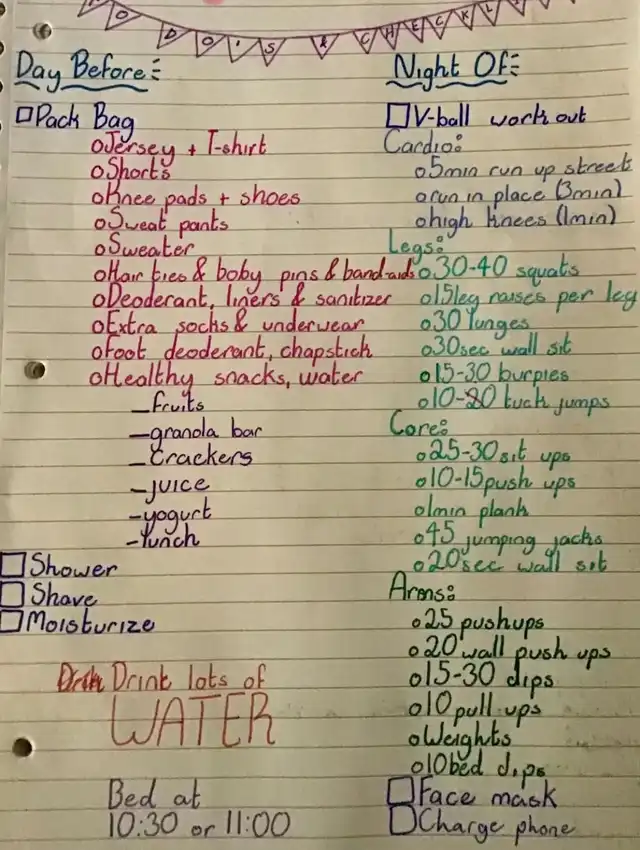 TO DO'S & CHECKLIS
Day Before:
☐Pack Bag
oJersey + T-shirt
oShorts
oKnee pads + shoes
oSweat pants
oSweater
oHair ties & boby pins & band-aids
oDeoderant, liners & sanitizer
oExtra socks & underwear
oFoot deoderant, chapstick
oHealthy snacks, water
-fruits
-granola bar
-Crackers
-juice
-yogurt
-lunch
☐Shower
☐Shave
☐Moisturize
Drink lots of
WATER
Bed at
10:30 or 11:00
Night Of:
☐V-ball work out
Cardio:
o5min run up street
orun in place (3min)
ohigh knees (1min)
Legs:
o30-40 squats
o15leg raises per leg
o30 lunges
o30sec wall sit
o15-30 burpies
o10-20 tuck jumps
Core:
o25-30sit ups
o10-15push ups
o1min plank
o45 jumping jacks
o20sec wall sit
Arms:
o25 pushups
o20wall push ups
o15-30 dips
o10pull ups
oWeights
o10bed dips
☐Face mask
☐Charge phone